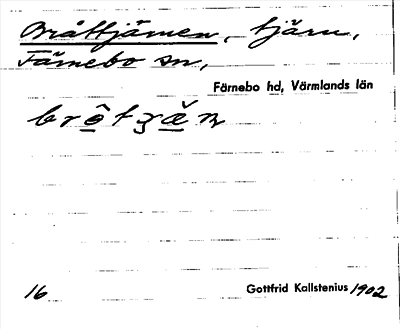 Bråttjärnen, tjärn,
Färnebo sn,
Färnebo hd, Värmlands län
16
Gottfrid Kallstenius 1902